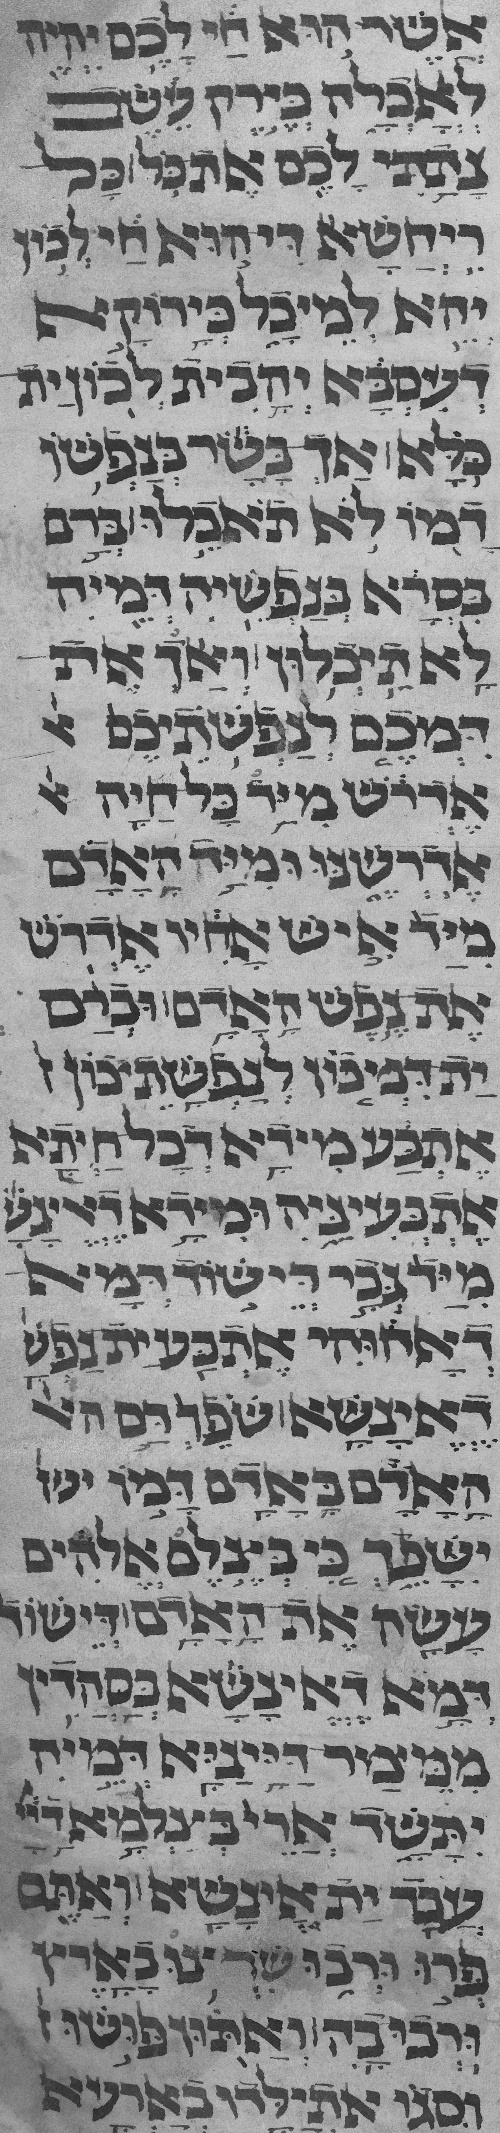 אשר הוא חי לכם יהיה
לאכלה כירק עשב
נתתי לכם את כל כל
ריחשא דיהוא חי לכון
יהא למיכל כירוקי א
דעסבא יהבית לכון ית
כלא אך בשר בנפשו
דמו לא תאכלו ברם
בסרא בנפשיה דמיה
לא תיכלון ואך את
דמכם לנפשתיכם א
אדרש מיד כל חיה א
אדרשנו ומיד האדם
מיד איש אחיו אדרש
את נפש האדם וברם
ית דמיכון לנפשתיכון ז
אתבע מידיא דכל חיתא
אתבעיניה ומידא דאינש
מיד גבר דישוד דמיא
דאחוהי אתבע ית נפש
דאינשא שפך דם הא
האדם באדם דמו יש
ישפך כי בינצלם אלהים
עשה את האדם דישוד
דמא דאינשא בסהדין
ממימר דייניא דמיה
יתשד ארי בצלמא דיי
עבד ית אינשא ואתם
פרו ורבו שרצו בארץ
ורבו בה ואתון פושו ז
וסגו אתילדו בארעא